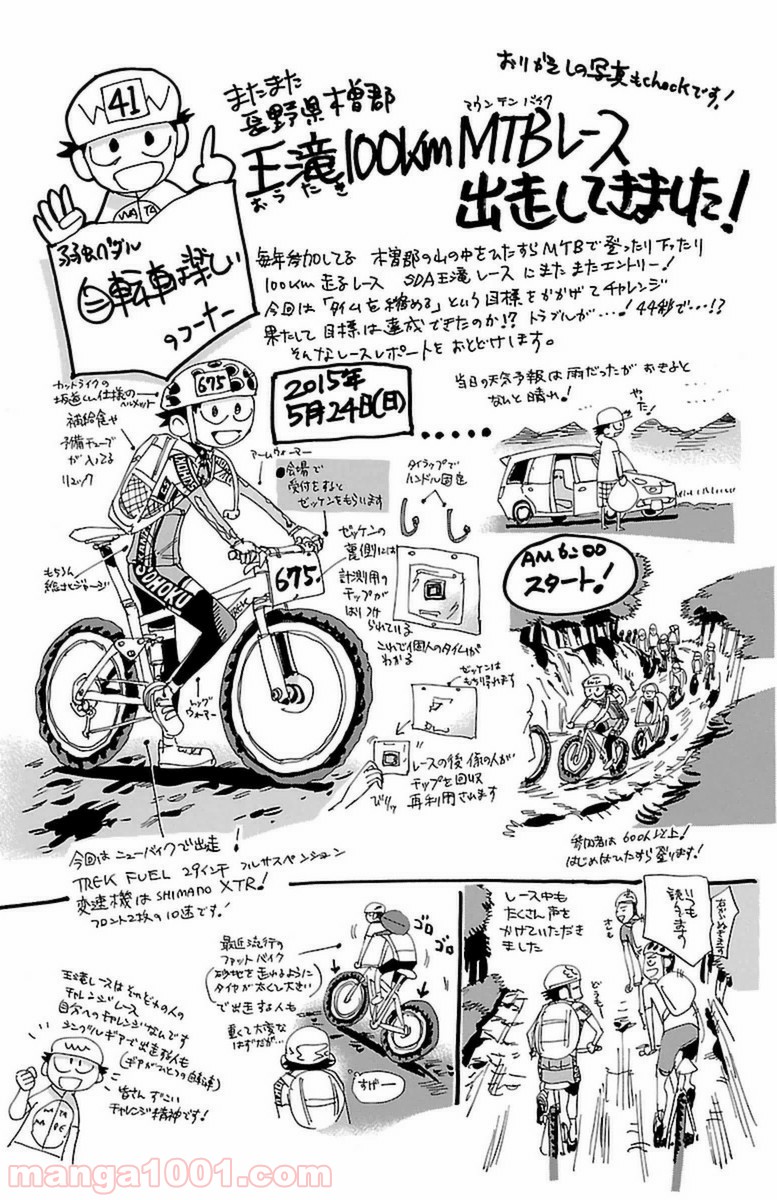 おりかえしの写真もcheckです!
41
またまた
長野県木曽郡
王滝100km MTBレース
おうたき
マウンテンバイク
出走してきました!
WATA
弱虫ペダル
自転車は楽しい
のコーナー
毎年参加してる 木曽郡の山の中をひたすらMTBで登ったり下ったり
100km走るレース SDA王滝レースにまたまたエントリー!
今回は「タイムを縮める」という目標をかかげてチャレンジ
果たして目標は達成できたのか!?トラブルが…!44秒で…!?
そんなレースレポートをおとどけします。
2015年
5月24日(日)
......
当日の天気予報は雨だったがおきると
なんと晴れ!
やった!
カットライクの
坂道くん仕様の
ヘルメット
675
補給食や
予備チューブ
が入ってる
リュック
アームウォーマー
●会場で
受付をすると
ゼッケンをもらいます
タイラップで
ハンドル固定
ゼッケンの
裏側には
計測用の
チップが
はりつけ
られている
これで個人のタイムが
わかる
もちろん
総北ジャージ
SOHOKU
TREK
675
レッグ
ウォーマー
ゼッケンは
もち帰れます
レースの後係の人が
チップを回収
再利用されます
びりッ
AM6:00
スタート!
参加者は600人以上!
はじめはひたすら登ります!
今回はニューバイクで出走
TREK FUEL 29インチ フルサスペンション
変速機はSHIMANO XTR!
フロント2枚の10速です!
王滝レースはそれぞれの人の
チャレンジレース
自分へのチャレンジなんです
シングルギアで出走する人も
(ギアがひとつの自転車)
皆さんすごい
チャレンジ精神です!
WATA
NABE
最近流行の
ファットバイク
(砂地を走れるように
タイヤが太くて大きい)
で出走する人も
重くて大変な
はずだが…
ゴロ
ゴロ
すげー
レース中も
たくさん声を
かけていただき
ました
いつも
読んでます
どうも
manga1001.com